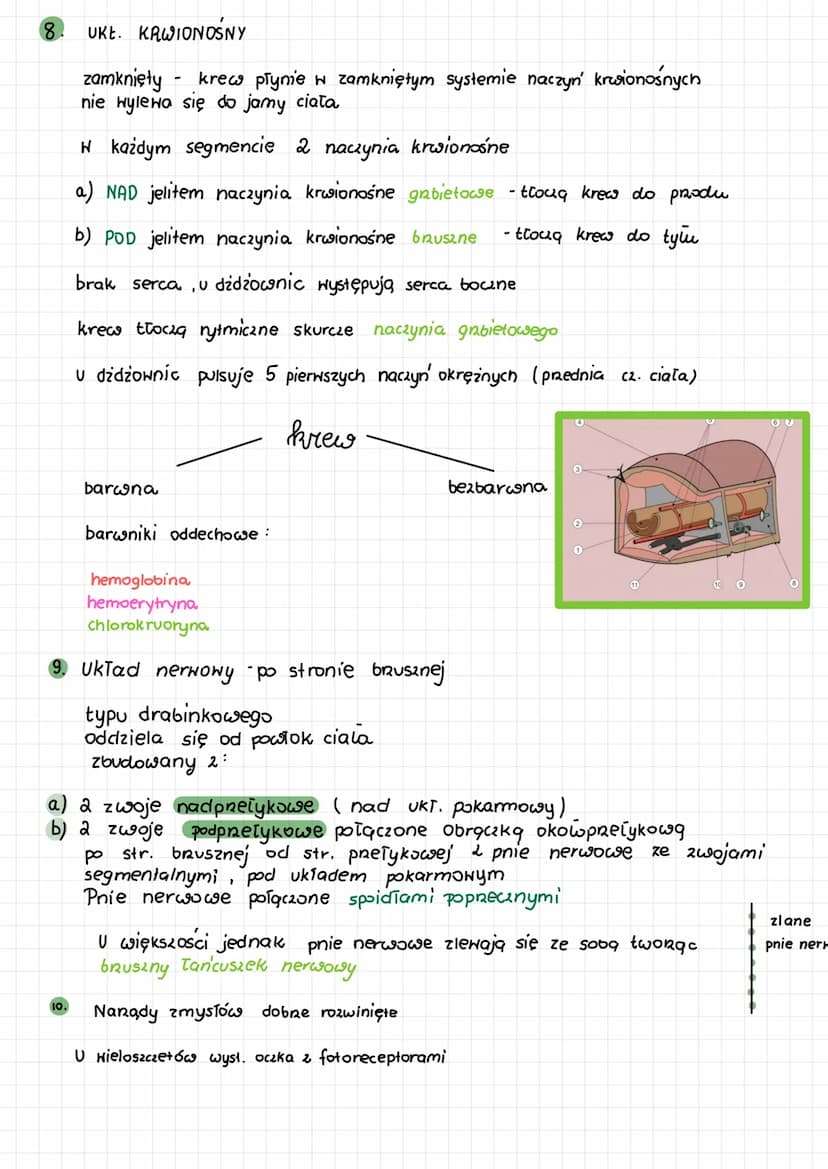 8. UKŁ. KRWIONOŚNY
zamknięty - krew płynie w zamkniętym systemie naczyń krwionośnych
nie wylewa się do jamy ciała
W każdym segmencie 2 naczynia krwionośne
a) NAD jelitem naczynia krwionośne grzbietowe - tłoczą krew do przodu
b) POD jelitem naczynia krwionośne brzuszne - tłoczą krew do tyłu
brak serca, u dżdżownic występują serca boczne
krew tłoczą rytmiczne skurcze naczynia grzbietowego
U dżdżownic pulsuje 5 pierwszych naczyń okrężnych (przednia cz. ciała)
krew
barwna
bezbarwna
barwniki oddechowe:
hemoglobina
hemoerytryna
chlorokruoryna
4 5 6 7
3
2
1
11 10 9 8
9. Układ nerwowy - po stronie brzusznej
typu drabinkowego
oddziela się od powłok ciała
zbudowany z:
a) 2 zwoje nadprzełykowe (nad ukł. pokarmowy)
b) 2 zwoje podprzełykowe połączone obrączką okołoprzełykową
po str. brzusznej od str. przełykowej 2 pnie nerwowe ze zwojami
segmentalnymi, pod układem pokarmowym
Pnie nerwowe połączone spoidłami poprzecznymi
zlane
pnie nerw
U większości jednak pnie nerwowe zlewają się ze sobą tworząc
brzuszny łańcuszek nerwowy
10. Narządy zmysłów dobrze rozwinięte
U wieloszczetów wyst. oczka z fotoreceptorami